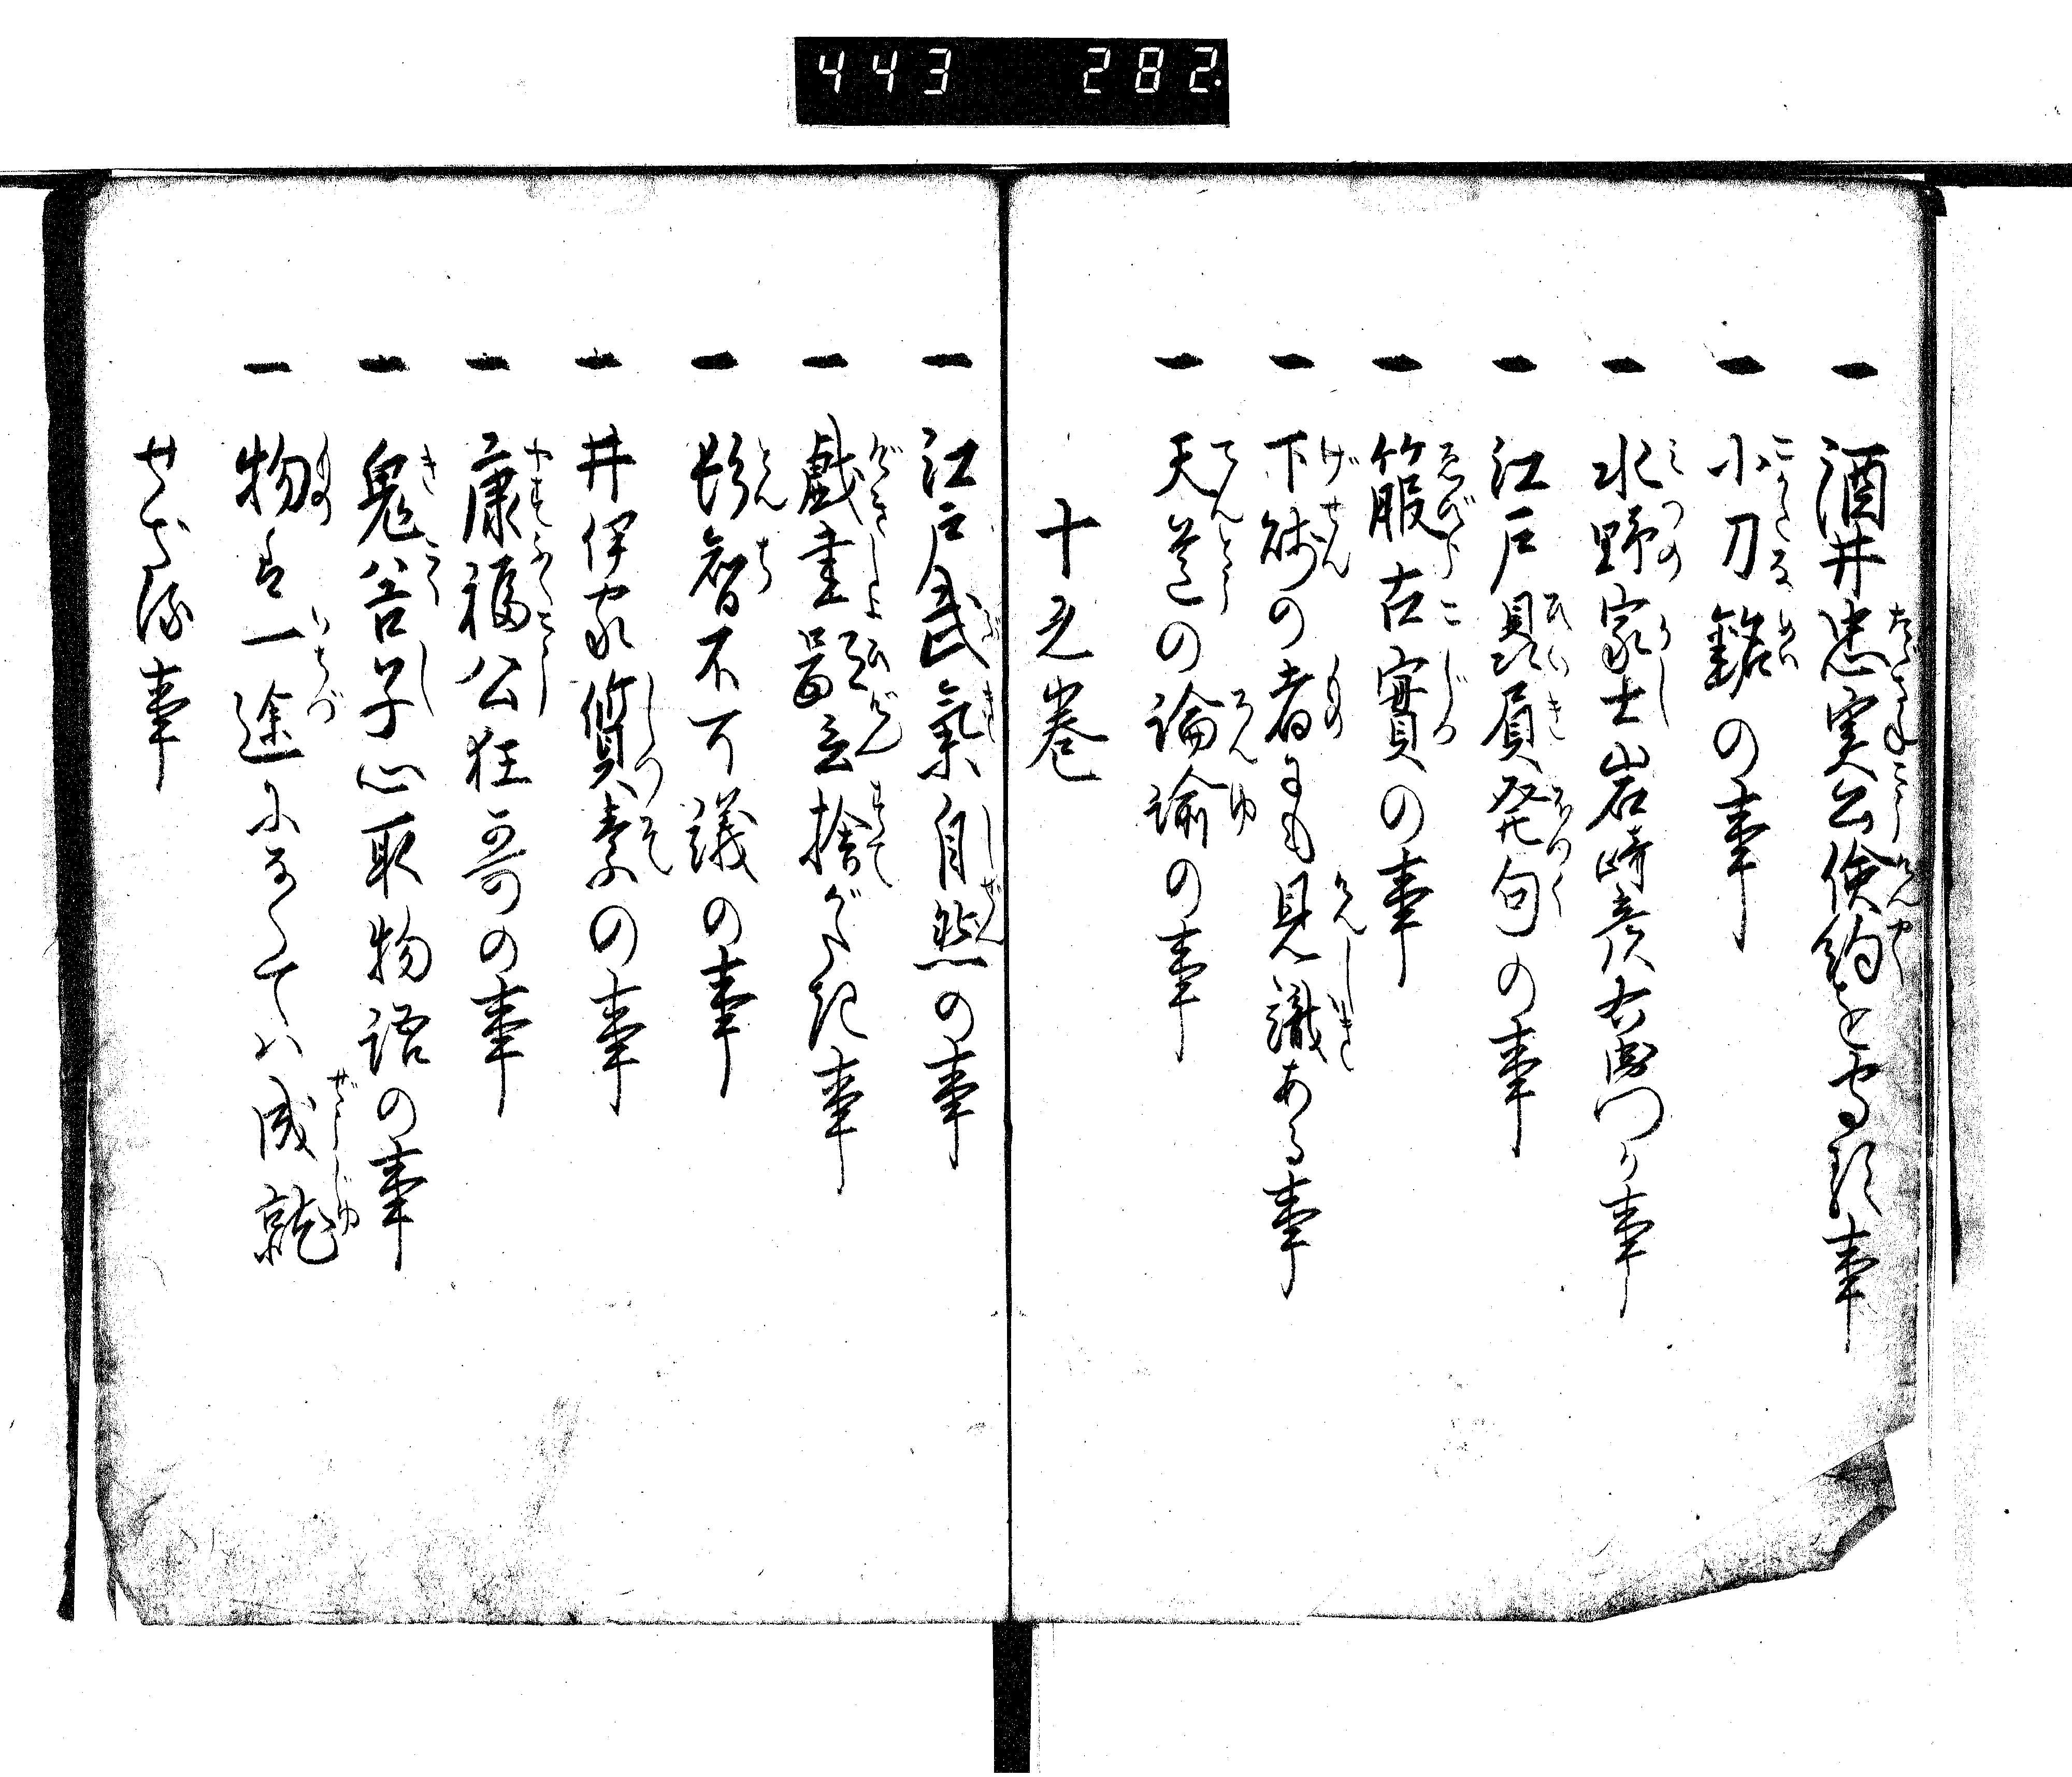 443 282.
一 酒井忠実公倹約を守る事
一 小刀銘の事
一 水野家士岩崎彦右衛門ヶ事
一 江戸贔屓発句の事
一 箙古實の事
一 下賎の者にも見識ある事
一 天道の論諭の事
十之巻
一 江戸武氣自然の事
一 戯書翫捨がたき事
一 頓智不可議の事
一 井伊家質素の事
一 康福公狂哥の事
一 鬼谷子心取物語の事
一 物言一途になくてハ成就
せざる事